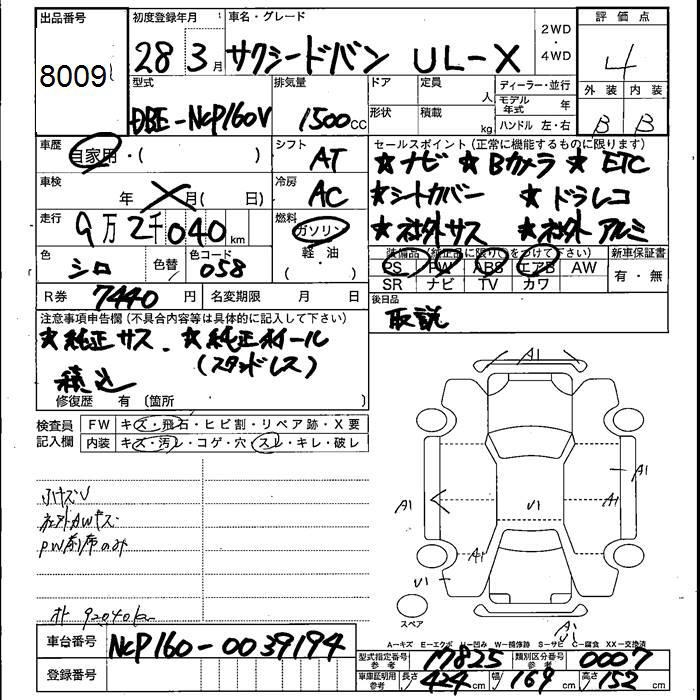 出品番号
8009
初度登録年月
28 3月
車名・グレード
サクシードバン UL-X
2WD
・
4WD
評価点
4
外装 内装
B B
型式
DBE-NCP160V
排気量
1500CC
ドア
定員
人
形状
積載
kg
ディーラー・並行
モデル年式 年
ハンドル 左・右
車歴
自家用・( )
シフト
AT
車検
年 月( 日)
冷房
AC
走行
9万2千040km
燃料
ガソリン
軽・油
( )
色
シロ
色替
色コード
058
R券
7440円
名変期限 月 日
セールスポイント(正常に機能するものに限ります)
★ナビ ★Bカメラ ★ETC
★シートカバー ★ドラレコ
★社外サス ★社外アルミ
装備品(純正品に限り○をつけて下さい)
PS PW ABS エアB AW
SR ナビ TV カワ
新車保証書
有・無
後日品
取説
注意事項申告欄(不具合内容等は具体的に記入して下さい)
★純正サス、★純正ホイール
(スタッドレス)
積込
修復歴 有 〔箇所 〕
検査員
記入欄
FW キズ・飛石・ヒビ割・リペア跡・X要
内装 キズ・汚レ・コゲ・穴・スレ・キレ・破レ
PW前席のみ
A1
A1
A1
U1
A1
A1
U1
A1
スペア
A-キズ E-エクボ U-凹み W-補修跡 S-サビ C-腐食 XX-交換済
車台番号
NCP160-0039194
登録番号
型式指定番号 参考
17825
類別区分番号 参考
0007
車庫証明用 参考
長さ 424cm 幅 169cm 高さ 152cm